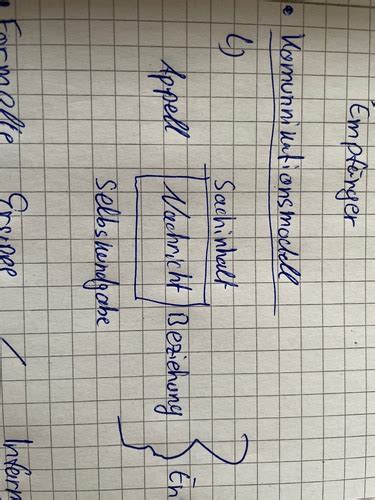 Empfänger
• Kommunikationsmodell
Sachinhalt
Appell Nachricht Beziehung
Selbskundgabe
• Formelle Gruppe / Inform